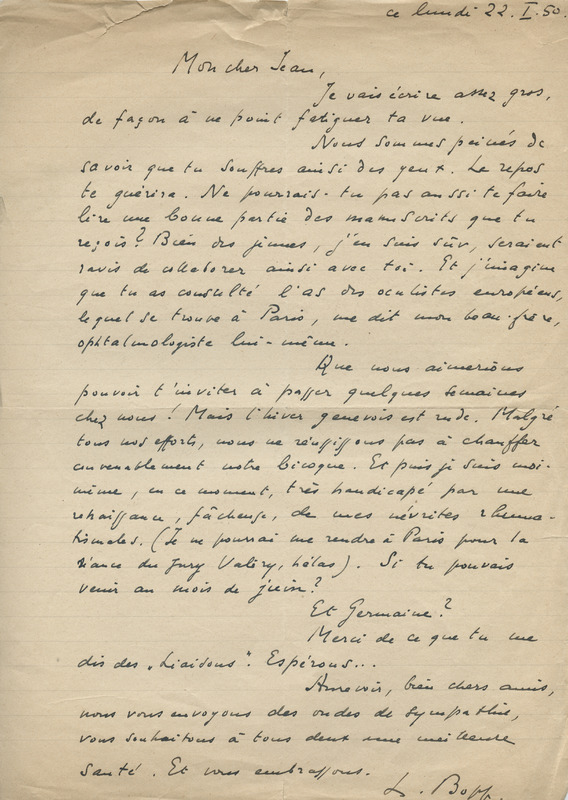 ce lundi 22. I. 50.
Mon cher Jean,
Je vais écrire assez gros,
de façon à ne point fatiguer ta vue.
Nous sommes peinés de
savoir que tu souffres ainsi des yeux. Le repos
te guérira. Ne pourrais-tu pas aussi te faire
lire une bonne partie des manuscrits que tu
reçois? Bien des jeunes, j'en suis sûr, seraient
ravis de collaborer ainsi avec toi. Et j'imagine
que tu as consulté l'as des oculistes européens,
lequel se trouve à Paris, me dit mon beau-frère,
ophtalmologiste lui-même.
Que nous aimerions
pouvoir t'inviter à passer quelques semaines
chez nous! Mais l'hiver genevois est rude. Malgré
tous nos efforts, nous ne réussissons pas à chauffer
convenablement notre bicoque. Et puis je suis moi-
même, en ce moment, très handicapé par une
renaissance, fâcheuse, de mes névrites rhuma-
tismales. (Je ne pourrai me rendre à Paris pour la
séance du Jury Valéry, hélas). Si tu pouvais
venir au mois de juin?
Et Germaine?
Merci de ce que tu me
dis des "Liaisons". Espérons...
Au revoir, bien chers amis,
nous vous envoyons des ondes de sympathie,
vous souhaitons à tous deux une meilleure
santé. Et vous embrassons.
L. Bopp.